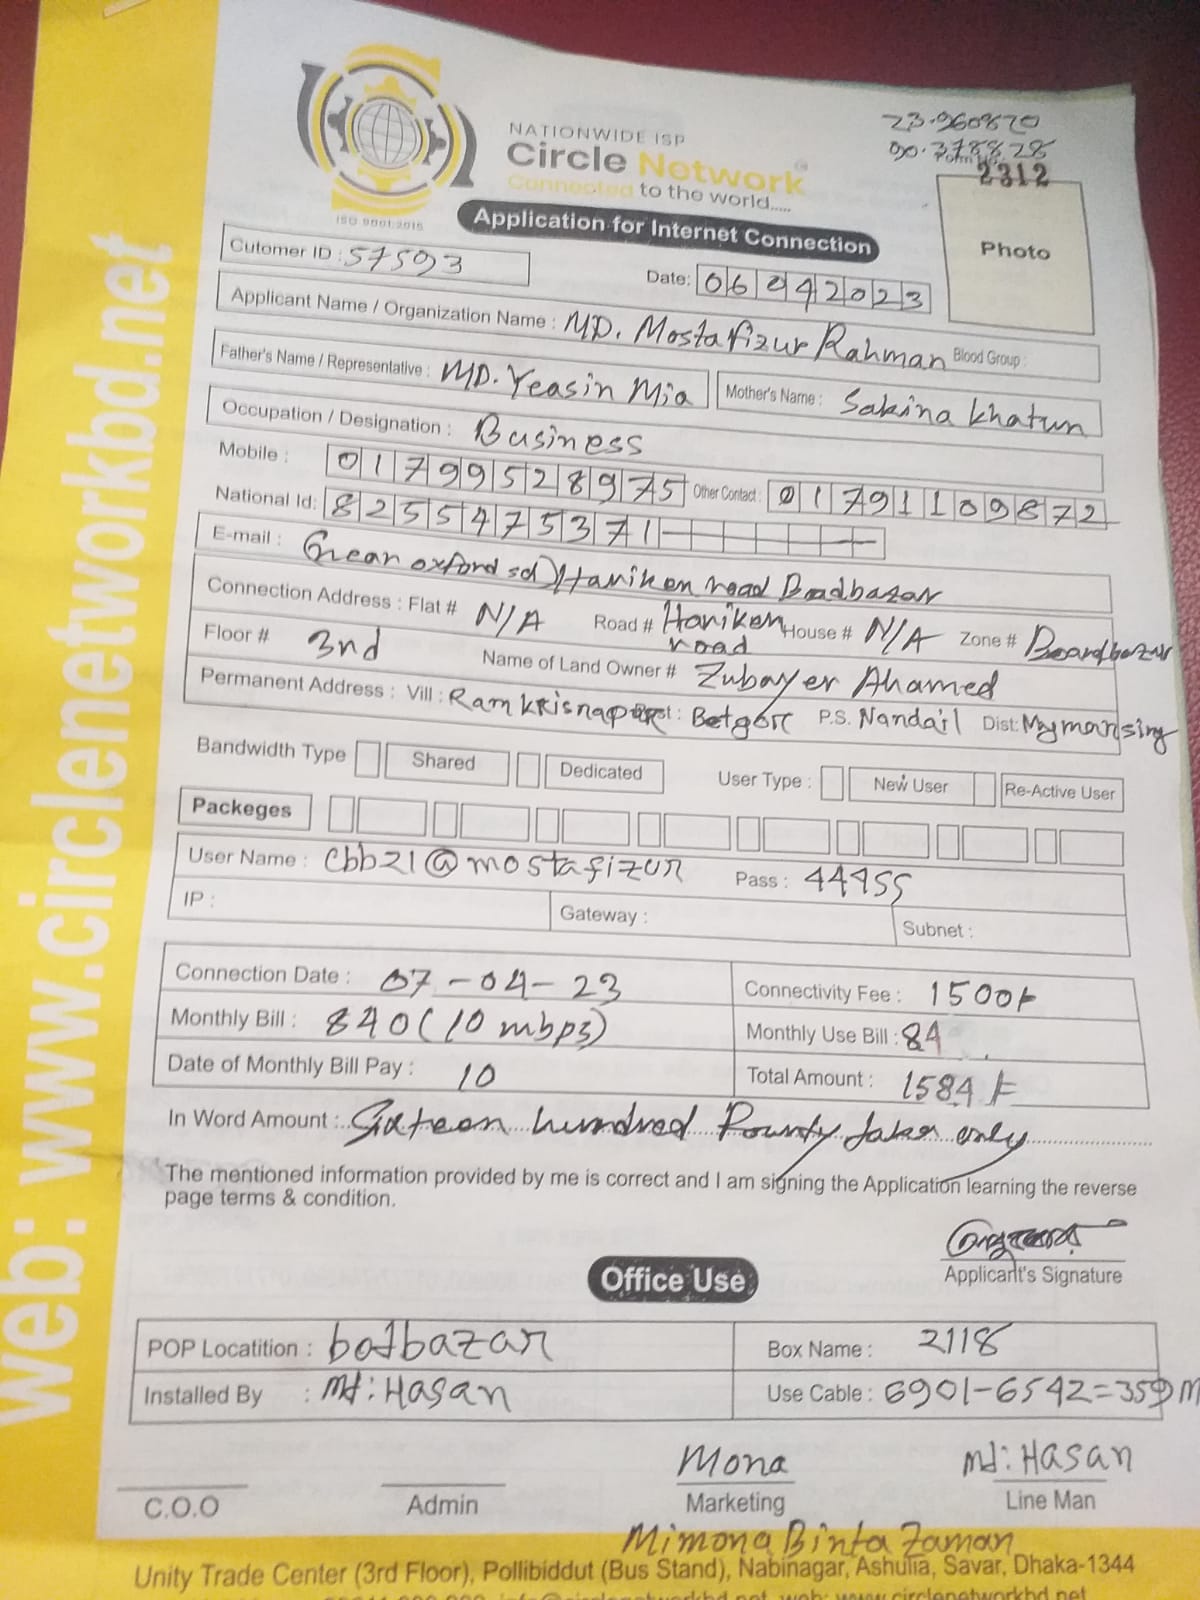 web: www.circlenetworkbd.net
23.960820
90.378828
NATIONWIDE ISP
Circle Network
Connected to the world.....
ISO 9001:2015
2312
Photo
Application for Internet Connection
Cutomer ID : 57593
Date: 06042023
Applicant Name / Organization Name : MD. Mostafizur Rahman Blood Group :
Father's Name / Representative : MD. Yeasin Mia Mother's Name : Sakina Khatun
Occupation / Designation : Business
Mobile : 01799528975 Other Contact : 01791109872
National Id: 8255475371
E-mail : Grean oxford Haniken road Boadbazar
Connection Address : Flat # N/A Road # Haniken road House # N/A Zone # Boardbazar
Floor # 3nd Name of Land Owner # Zubayer Ahamed
Permanent Address : Vill : Ramkrisnapur Post : Betgor P.S. Nandail Dist: Mymansing
Bandwidth Type Shared Dedicated User Type : New User Re-Active User
Packeges
User Name : cbb21@mostafizur Pass : 44455
IP : Gateway : Subnet :
Connection Date : 07-04-23 Connectivity Fee : 1500
Monthly Bill : 840 (10 mbps) Monthly Use Bill : 84
Date of Monthly Bill Pay : 10 Total Amount : 1584
In Word Amount : Sixteen hundred Pounty taka only
The mentioned information provided by me is correct and I am signing the Application learning the reverse
page terms & condition.
Applicant's Signature
Office Use
POP Locatition : botbazar Box Name : 2118
Installed By : Md: Hasan Use Cable : 6901-6542=359 M
Mona Md: Hasan
C.O.O Admin Marketing Line Man
Mimona Binta Zaman
Unity Trade Center (3rd Floor), Pollibiddut (Bus Stand), Nabinagar, Ashulia, Savar, Dhaka-1344
web: www.circlenetworkbd.net